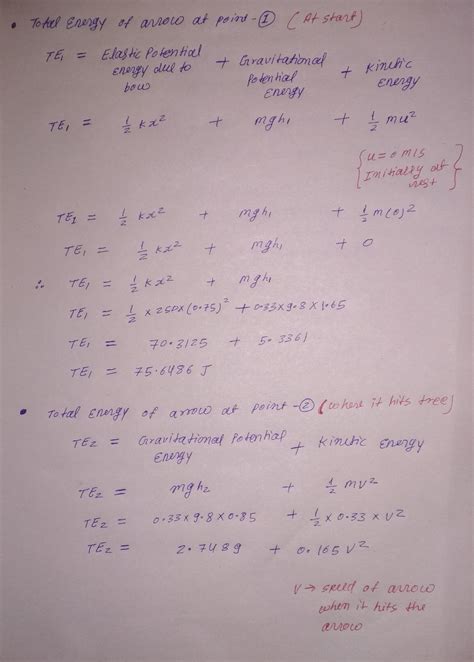 • Total Energy of arrow at point - ① (At start)
TE₁ = Elastic Potential Energy due to bow + Gravitational Potential Energy + Kinetic Energy
TE₁ = 1/2 kx² + mgh₁ + 1/2 mu²
{u = 0 m/s Initially at rest}
TE₁ = 1/2 kx² + mgh₁ + 1/2 m(0)²
TE₁ = 1/2 kx² + mgh₁ + 0
∴ TE₁ = 1/2 kx² + mgh₁
TE₁ = 1/2 × 250 × (0.75)² + 0.33 × 9.8 × 1.65
TE₁ = 70.3125 + 5.3361
TE₁ = 75.6486 J
• Total Energy of arrow at point - ② (where it hits tree)
TE₂ = Gravitational Potential Energy + Kinetic Energy
TE₂ = mgh₂ + 1/2 mv²
TE₂ = 0.33 × 9.8 × 0.85 + 1/2 × 0.33 × v²
TE₂ = 2.7489 + 0.165 v²
v → speed of arrow
when it hits the
arrow